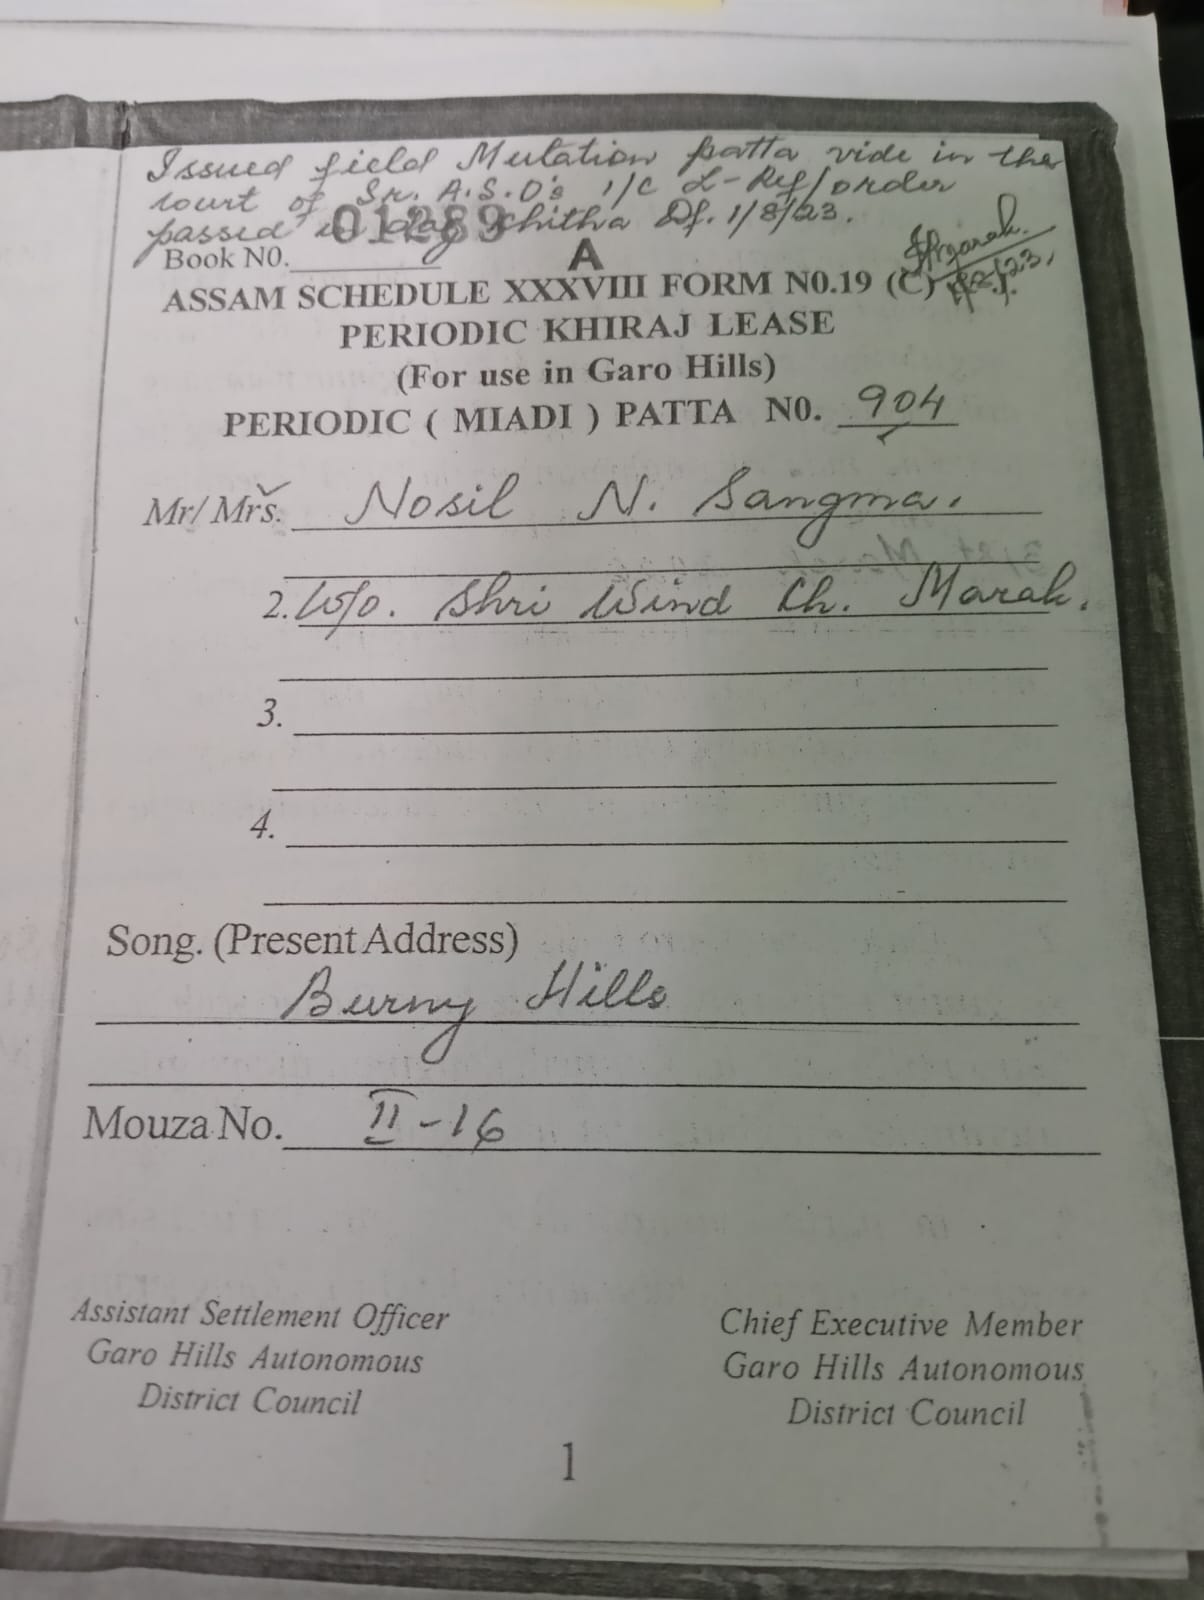 Issued field Mutation patta vide in the
court of Sr. A.S.O's I/C L-Ref/order
passed in dag chitha Df. 1/8/23.
01289
Book N0.
A
ASSAM SCHEDULE XXXVIII FORM N0.19 (C)
PERIODIC KHIRAJ LEASE
(For use in Garo Hills)
PERIODIC ( MIADI ) PATTA N0. 904
Mr/ Mrs. Nosil N. Sangma.
2. W/o. Shri Wind Ch. Marak.
3.
4.
Song. (Present Address)
Burny Hills
Mouza No. II-16
Assistant Settlement Officer
Garo Hills Autonomous
District Council
Chief Executive Member
Garo Hills Autonomous
District Council
1